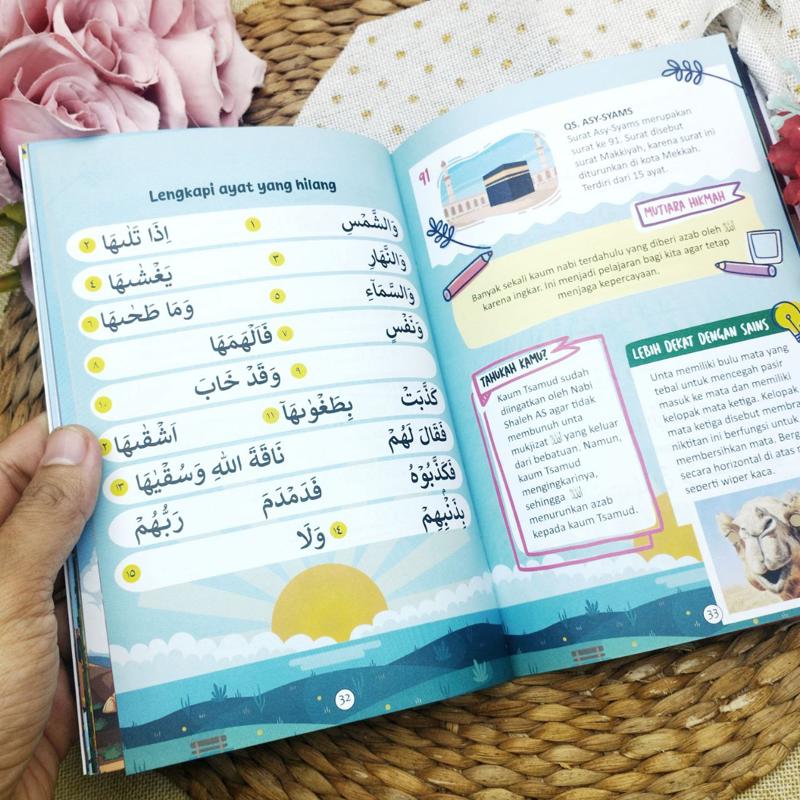 Lengkapi ayat yang hilang
وَالشَّمْسِ ١ اِذَا تَلٰىهَا ٢
وَالنَّهَارِ ٣ يَغْشٰىهَا ٤
وَالسَّمَاۤءِ ٥ وَمَا طَحٰىهَا ٦
وَنَفْسٍ ٧ فَاَلْهَمَهَا
٨
٩ وَقَدْ خَابَ ١٠
كَذَّبَتْ بِطَغْوٰىهَآ ١١ اَشْقٰىهَا
فَقَالَ لَهُمْ نَاقَةَ اللّٰهِ وَسُقْيٰهَا ١٣
فَكَذَّبُوْهُ فَدَمْدَمَ رَبُّهُمْ
بِذَنْۢبِهِمْ ١٤ وَلَا
١٥
32
91
QS. ASY-SYAMS
Surat Asy-Syams merupakan
surat ke 91. Surat disebut
surat Makkiyah, karena surat ini
diturunkan di kota Mekkah.
Terdiri dari 15 ayat.
MUTIARA HIKMAH
Banyak sekali kaum nabi terdahulu yang diberi azab oleh
karena ingkar. Ini menjadi pelajaran bagi kita agar tetap
menjaga kepercayaan.
TAHUKAH KAMU?
Kaum Tsamud sudah
diingatkan oleh Nabi
Shaleh AS agar tidak
membunuh unta
mukjizat yang keluar
dari bebatuan. Namun,
kaum Tsamud
mengingkarinya,
sehingga
menurunkan azab
kepada kaum Tsamud.
LEBIH DEKAT DENGAN SAINS
Unta memiliki bulu mata yang
tebal untuk mencegah pasir
masuk ke mata dan memiliki
kelopak mata ketiga. Kelopak
mata ketiga disebut membra
niktitan ini berfungsi untuk
membersihkan mata. Berg
secara horizontal di atas
seperti wiper kaca.
33